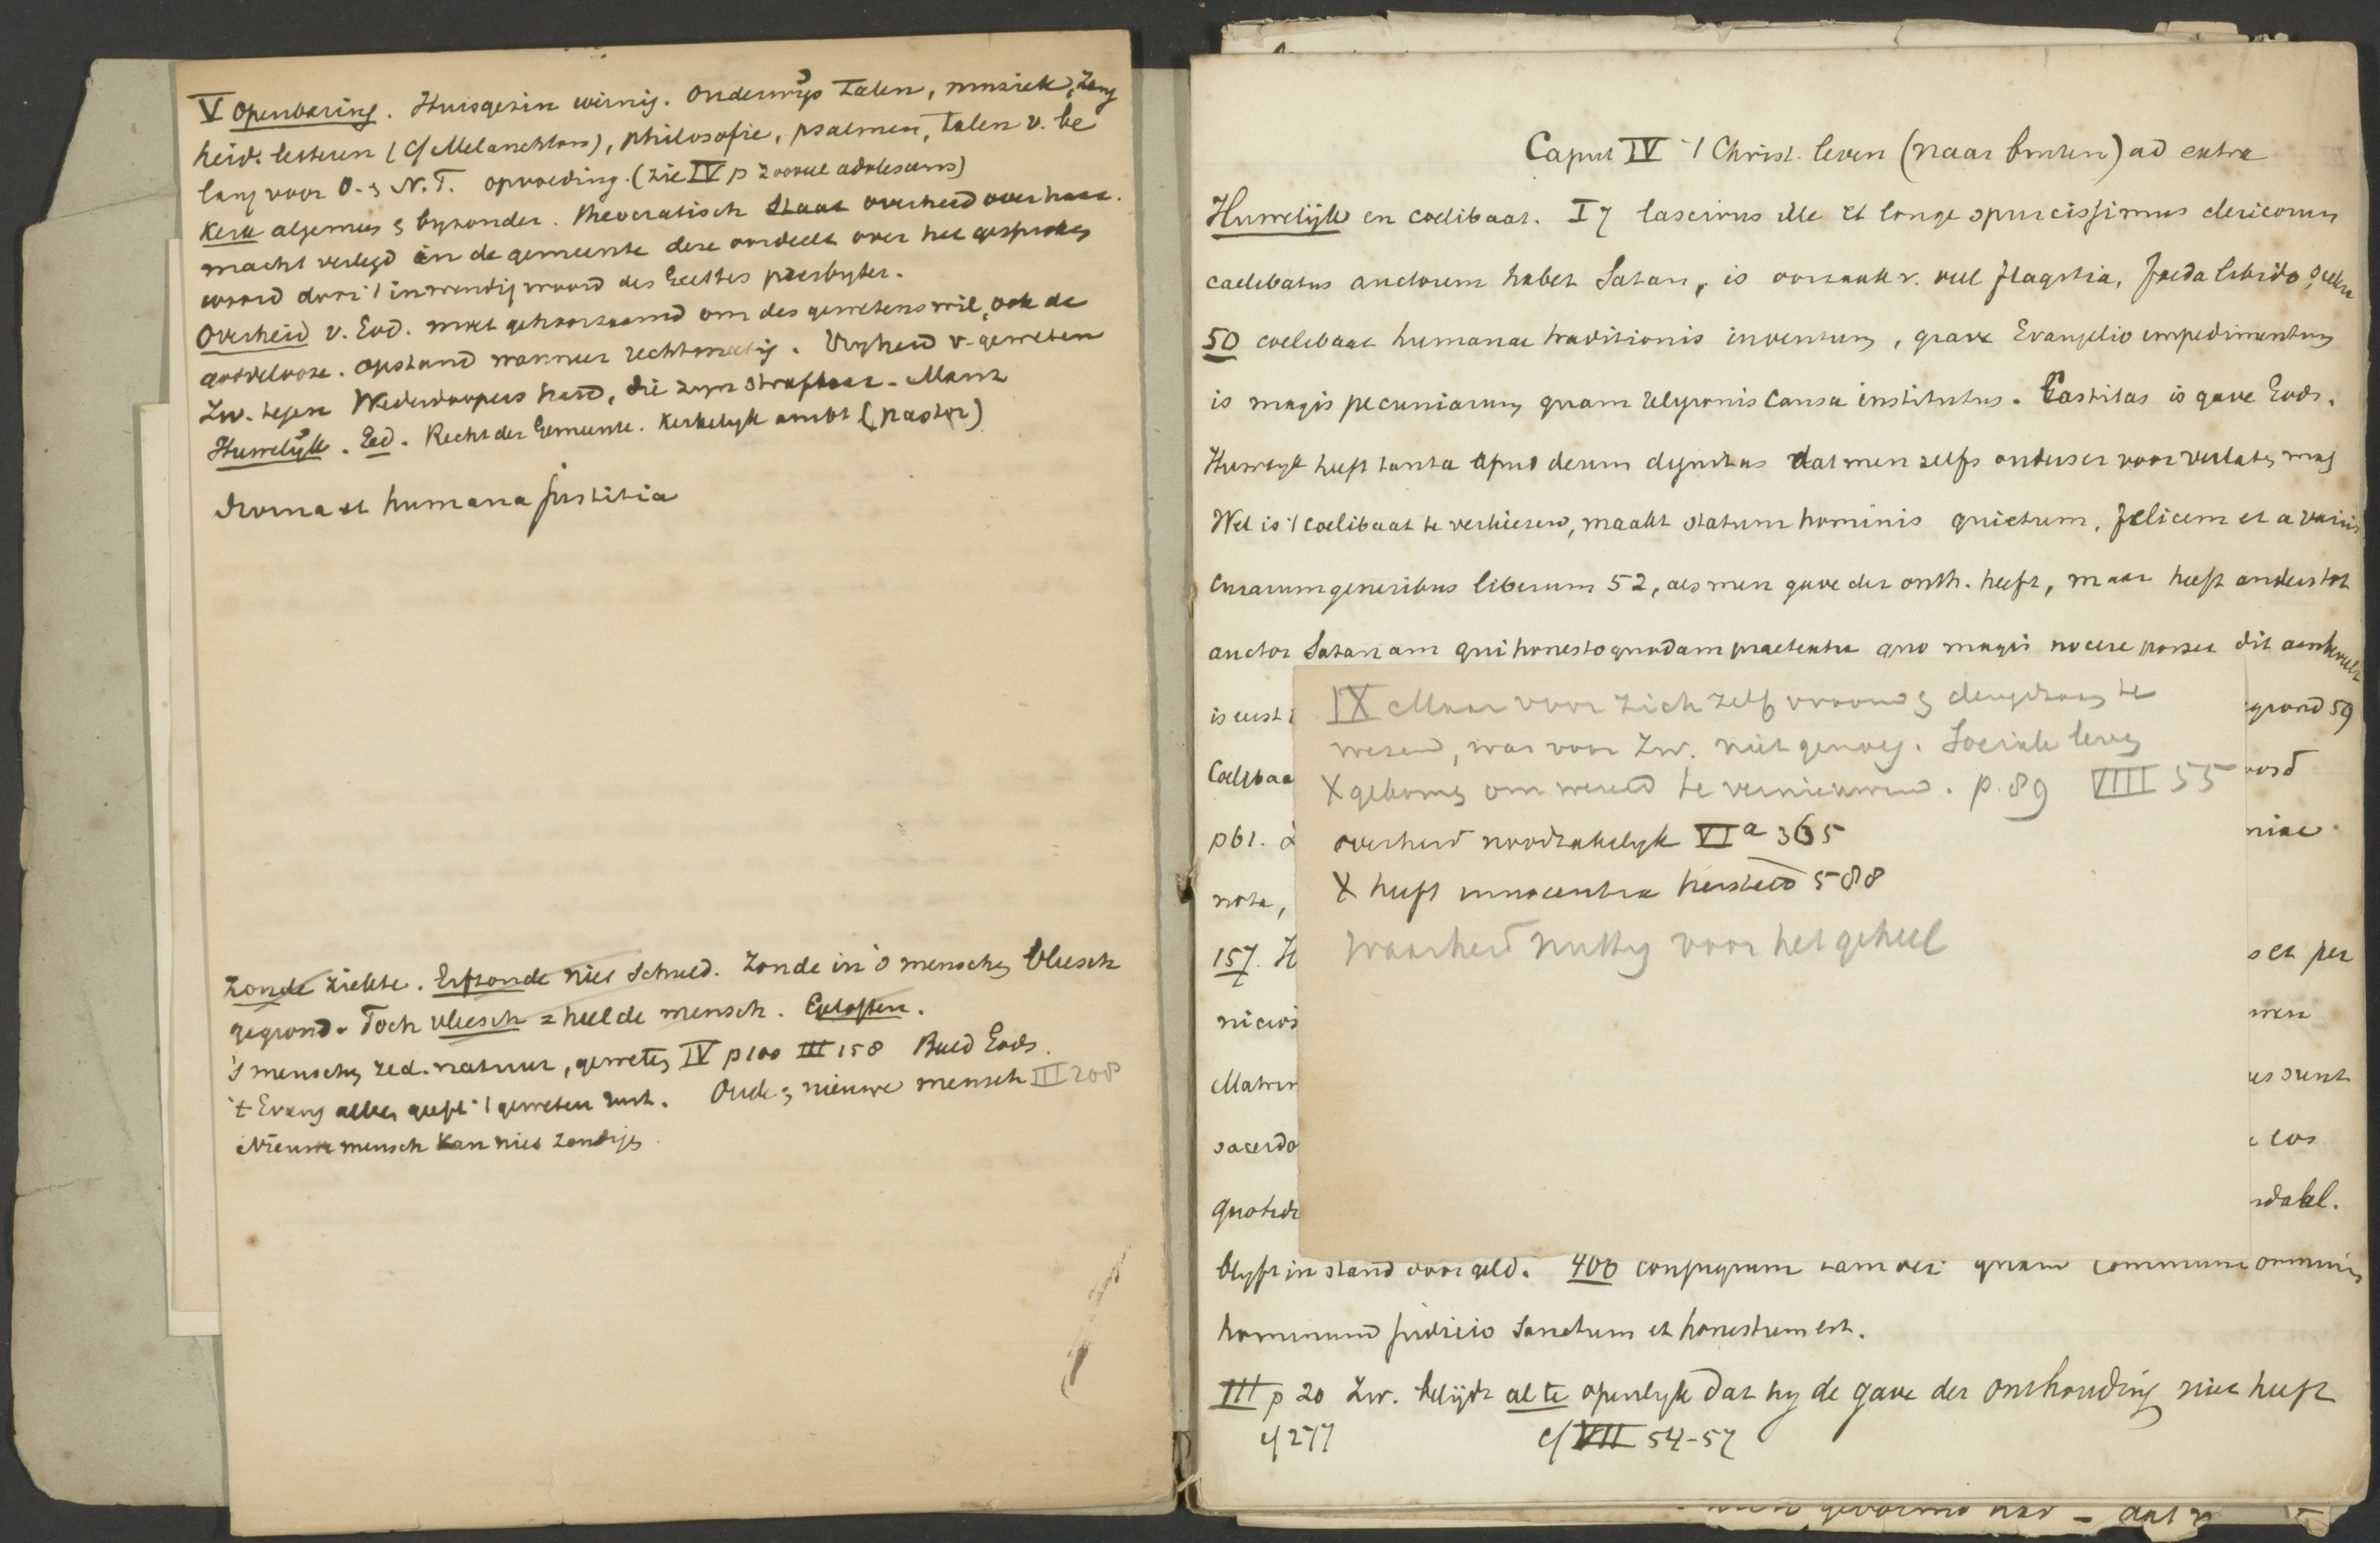 V Openbaring. Huisgezin weinig. Onderwijs Talen, muziek, Zang
heid. letteren (cf Melanchton), philosofie, psalmen, talen v. be
lang voor O. & N.T. opvoeding. (zie IV p adolescens)
Kerk algemeen & byzonder. Theocratisch Staat overheid over haar.
macht verlegd in de gemeente deze oordeelt over het gesproken
woord door 't inwendig woord des Geestes presbyter.
Overheid v. God. moet gehoorzaamd om des gewetens wil, ook de
goddelooze. Opstand wanneer rechtmatig. Vryheid v. geweten
Zw. tegen Wederdoopers hard, die zyn strafbaar. Manz
Huwelijk. Eed. Recht der Gemeente. Kerkelyk ambt (pastor)
divina et humana justitia
Zonde ziekte. Erfzonde niet schuld. Zonde in 's menschen vleesch
gegrond. Toch vleesch = heel de mensch. Gelooften.
's menschen zed. natuur, geweten IV p 100 III 158 Beeld Gods.
't Evang alleen geeft 't geweten rust. Oude & nieuwe mensch III 208
Nieuwe mensch kan niet zondigen
Caput IV 't Christ. leven (naar buiten) ad extra
Huwelijk en coelibaat. I 7 lascivus ille et longe spurcissimus clericorum
caelibatus auctorem habet Satan, is oorzaak v. veel flagitia, foeda libido, scelera
50 coelibaat humanae traditionis inventum, grave Evangelio impedimentum
is magis pecuniarum quam religionis causa institutus. Castitas is gave Gods.
Huwelyk heeft tanta apud deum dignitas dat men zelfs ouders er voor verlaten mag
Wel is 't coelibaat te verkiezen, maakt statum hominis quietum, felicem et a variis
curarum generibus liberum 52, als men gave der onth. heeft, maar heeft anders tot
auctor Satanam qui honesto quodam praetextu quo magis nocere posset dit aanbeveelt
is eerst
grond 59
Coelibaa
oord
p 61.
niae
nota,
157. H
s et per
nicios
men
Matrim
es sunt
sacerdo
eos
quotidi
ndabl.
blyft in stand voor geld. 400 conjugium tam dei quam communi omnium
hominum judicio sanctum et honestum est.
III p 20 Zw. belijdt al te openlyk dat hy de gave der onthouding niet heeft
cf 277 cf VII 54-57
IX Maar voor zich zelf vroom & deugdzaam te
wezen, was voor Zw. niet genoeg. Sociale leven
X gekomen om wereld te vernieuwen. p. 89 VIII 55
overheid noodzakelyk VI a 365
X heeft innocentia hersteld 588
Waarheid nuttig voor het geheel
gevormd had - dat